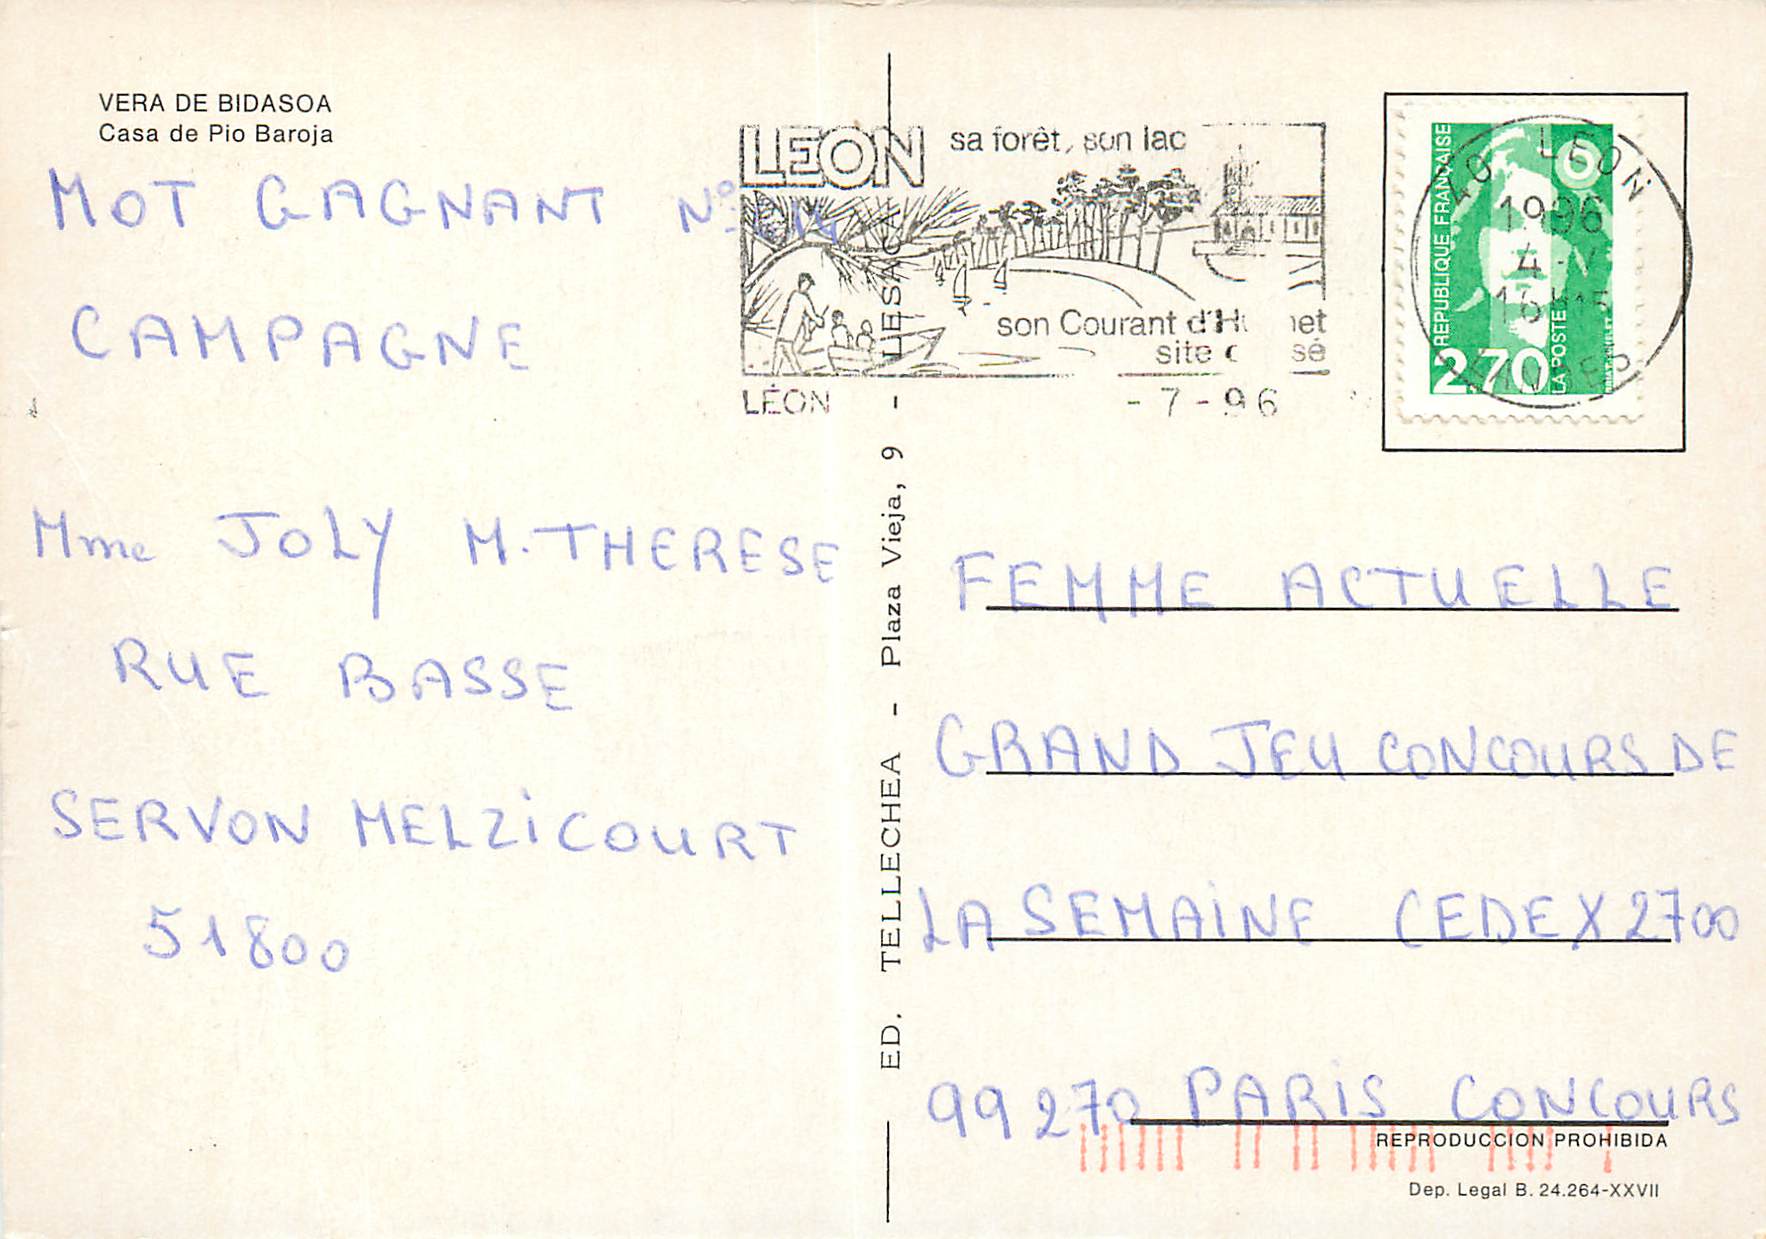 VERA DE BIDASOA
Casa de Pio Baroja
MOT GAGNANT N°
CAMPAGNE
Mme JOLY M. THERESE
RUE BASSE
SERVON MELZICOURT
51800
LEON sa forêt, son lac
son Courant d'H
site
LÉON - 7 - 96
ED. TELLECHEA - Plaza Vieja, 9 - LESACA
40 LEON
1996
4
LANDES
REPUBLIQUE FRANÇAISE
2,70
LA POSTE
FEMME ACTUELLE
GRAND JEU CONCOURS DE
LA SEMAINE CEDEX 2700
99270 PARIS CONCOURS
REPRODUCCION PROHIBIDA
Dep. Legal B. 24.264-XXVII